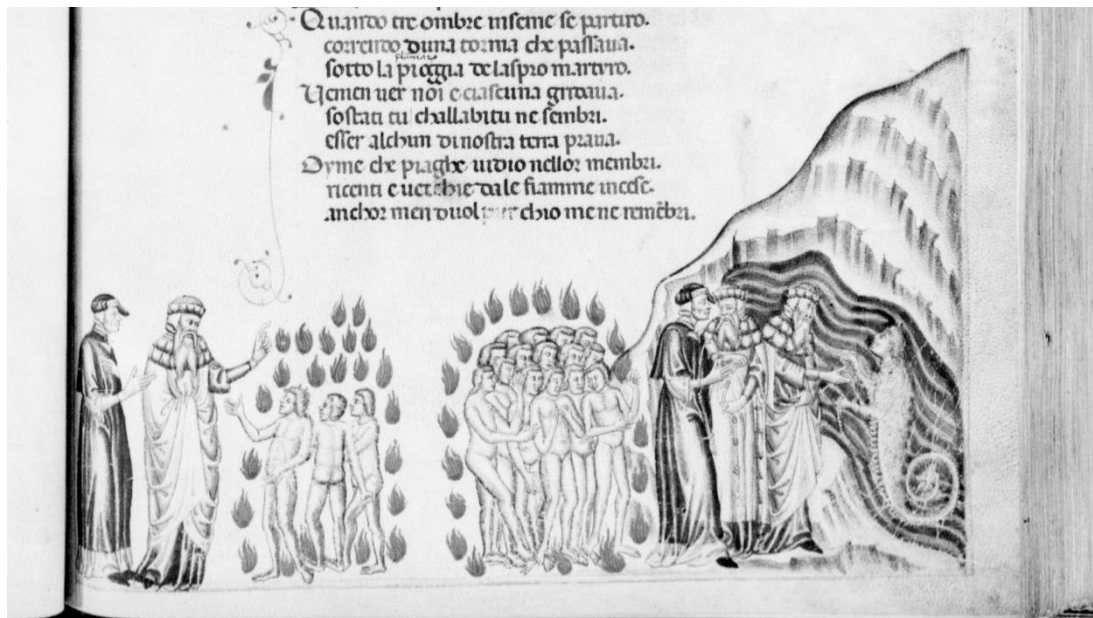 Quando tre ombre inseme se partiro.
correndo duna torma che passaua.
sotto la pioggia de laspro martyro.
Uenien uer noi e ciascuna gridaua.
sostati tu challabitu ne sembri.
esser alchun di nostra terra praua.
Oyme che piaghe uidio nellor membri.
ricenti e uecchie da le fiamme incese.
anchor men duol pur chio me ne remẽbri.